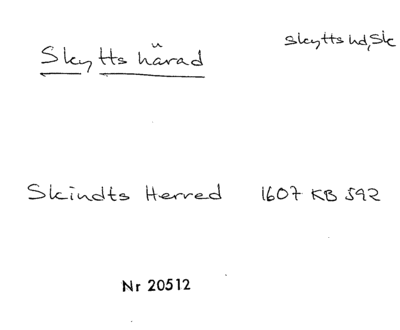 Skytts härad
Skytts hd, Sk
Skindts Herred 1607 KB 592
Nr 20512